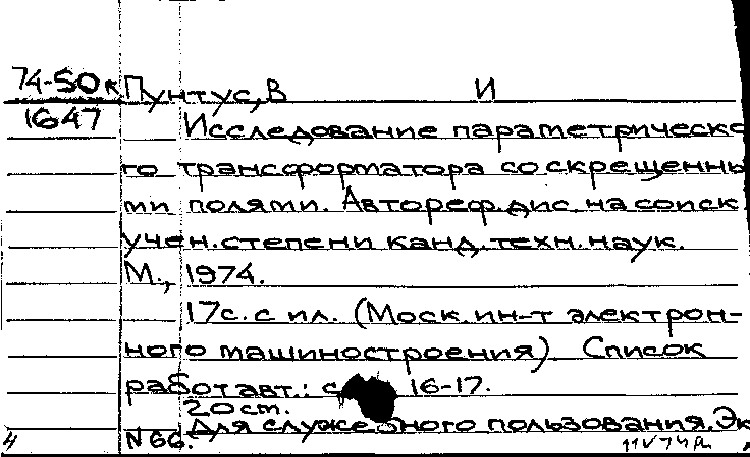 74-50к Пунтус, В И
1647 Исследование параметрическо
го трансформатора со скрещенны
ми полями. Автореф. дис. на соиск
учен. степени канд. техн. наук.
М., 1974.
17с. с ил. (Моск. ин-т электрон-
ного машиностроения). Список
работ авт.: с. 16-17.
20 ст.
Для служебного пользования. Эк
N 66.